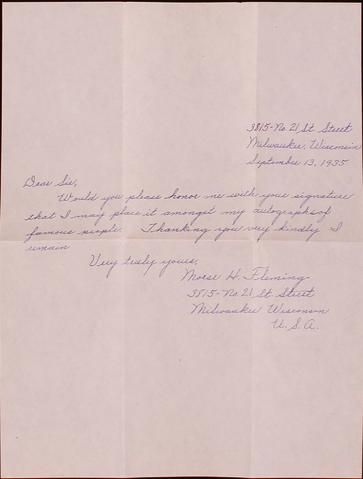 3815-No. 21 St Street
Milwaukee, Wisconsin
September 13, 1935
Dear Sir,
Would you please honor me with your signature
that I may place it amongst my autographs of
famous people. Thanking you very kindly I
remain
Very truly yours,
Morse H. Fleming
3815-No. 21 St Street
Milwaukee Wisconsin
U. S. A.